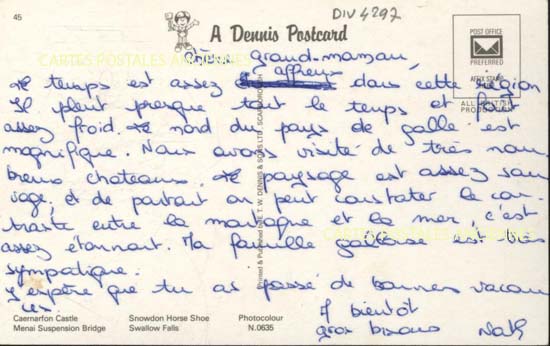 45
DIV4297
A Dennis Postcard
POST OFFICE
PREFERRED
AFFIX STAMP
ALL BRITISH
PRODUCTION
CARTES POSTALES ANCIENNES
Chère grand-maman,
Le temps est assez affreux dans cette région
Il pleut presque tout le temps et fait
assez froid. Le nord du pays de galle est
magnifique. Nous avons visité de très nom
breux chateaux. Le paysage est assez sau
vage, et de partout on peut constater le con
traste entre la montagne et la mer, c'est
assez étonnant. Ma famille galloise est très
sympatique.
J'espère que tu as passé de bonnes vacan
ces.
A bientôt
gros bisous
Printed & Published by E. T. W. DENNIS & SONS LTD., SCARBOROUGH
Caernarfon Castle
Menai Suspension Bridge
Snowdon Horse Shoe
Swallow Falls
Photocolour
N.0635